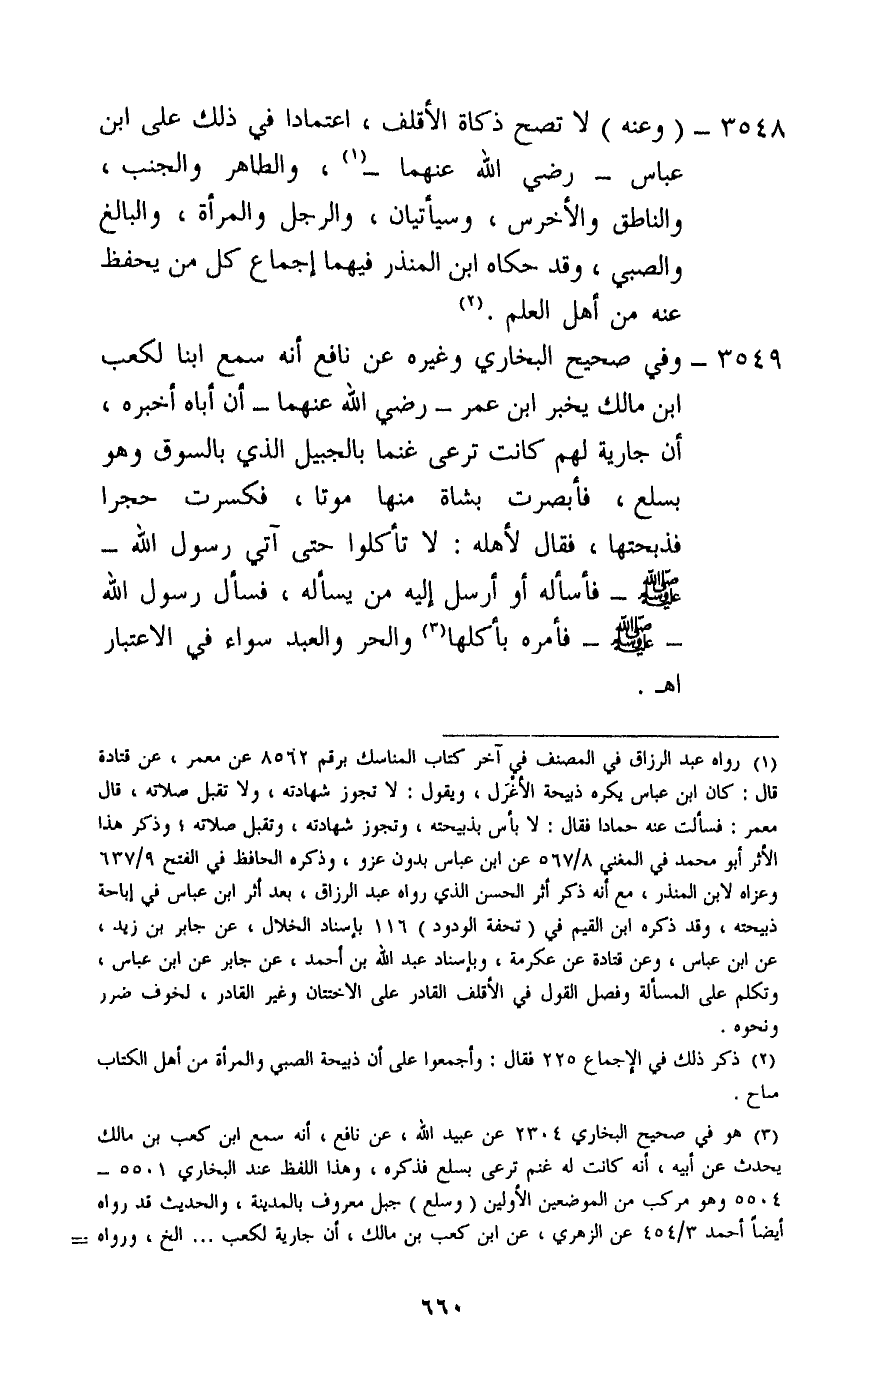 ٣٥٤٨ ــ ( وعنه ) لا تصح ذكاة الأقلف ، اعتمادا في ذلك على ابن
عباس ــ رضي الله عنهما ــ(١) ، والطاهر والجنب ،
والناطق والأخرس ، وسيأتيان ، والرجل والمرأة ، والبالغ
والصبي ، وقد حكاه ابن المنذر فيهما إجماع كل من يحفظ
عنه من أهل العلم .(٢)
٣٥٤٩ ــ وفي صحيح البخاري وغيره عن نافع أنه سمع ابنا لكعب
ابن مالك يخبر ابن عمر ــ رضي الله عنهما ــ أن أباه أخبره ،
أن جارية لهم كانت ترعى غنما بالجبيل الذي بالسوق وهو
بسلع ، فأبصرت بشاة منها موتا ، فكسرت حجرا
فذبحتها ، فقال لأهله : لا تأكلوا حتى آتي رسول الله ــ
ﷺ ــ فأسأله أو أرسل إليه من يسأله ، فسأل رسول الله
ــ ﷺ ــ فأمره بأكلها(٣) والحر والعبد سواء في الاعتبار
اهـ .
(١) رواه عبد الرزاق في المصنف في آخر كتاب المناسك برقم ٨٥٦٢ عن معمر ، عن قتادة
قال : كان ابن عباس يكره ذبيحة الأغْرَل ، ويقول : لا تجوز شهادته ، ولا تقبل صلاته ، قال
معمر : فسألت عنه حمادا فقال : لا بأس بذبيحته ، وتجوز شهادته ، وتقبل صلاته ؛ وذكر هذا
الأثر أبو محمد في المغني ٥٦٧/٨ عن ابن عباس بدون عزو ، وذكره الحافظ في الفتح ٦٣٧/٩
وعزاه لابن المنذر ، مع أنه ذكر أثر الحسن الذي رواه عبد الرزاق ، بعد أثر ابن عباس في إباحة
ذبيحته ، وقد ذكره ابن القيم في ( تحفة الودود ) ١١٦ بإسناد الخلال ، عن جابر بن زيد ،
عن ابن عباس ، وعن قتادة عن عكرمة ، وبإسناد عبد الله بن أحمد ، عن جابر عن ابن عباس ،
وتكلم على المسألة وفصل القول في الأقلف القادر على الاختتان وغير القادر ، لخوف ضرر
ونحوه .
(٢) ذكر ذلك في الإجماع ٢٢٥ فقال : وأجمعوا على أن ذبيحة الصبي والمرأة من أهل الكتاب
مباح .
(٣) هو في صحيح البخاري ٢٣٠٤ عن عبيد الله ، عن نافع ، أنه سمع ابن كعب بن مالك
يحدث عن أبيه ، أنه كانت له غنم ترعى بسلع فذكره ، وهذا اللفظ عند البخاري ٥٥٠١ ــ
٥٥٠٤ وهو مركب من الموضعين الأولين ( وسلع ) جبل معروف بالمدينة ، والحديث قد رواه
أيضاً أحمد ٤٥٤/٣ عن الزهري ، عن ابن كعب بن مالك ، أن جارية لكعب ... الخ ، ورواه =
٦٦٠